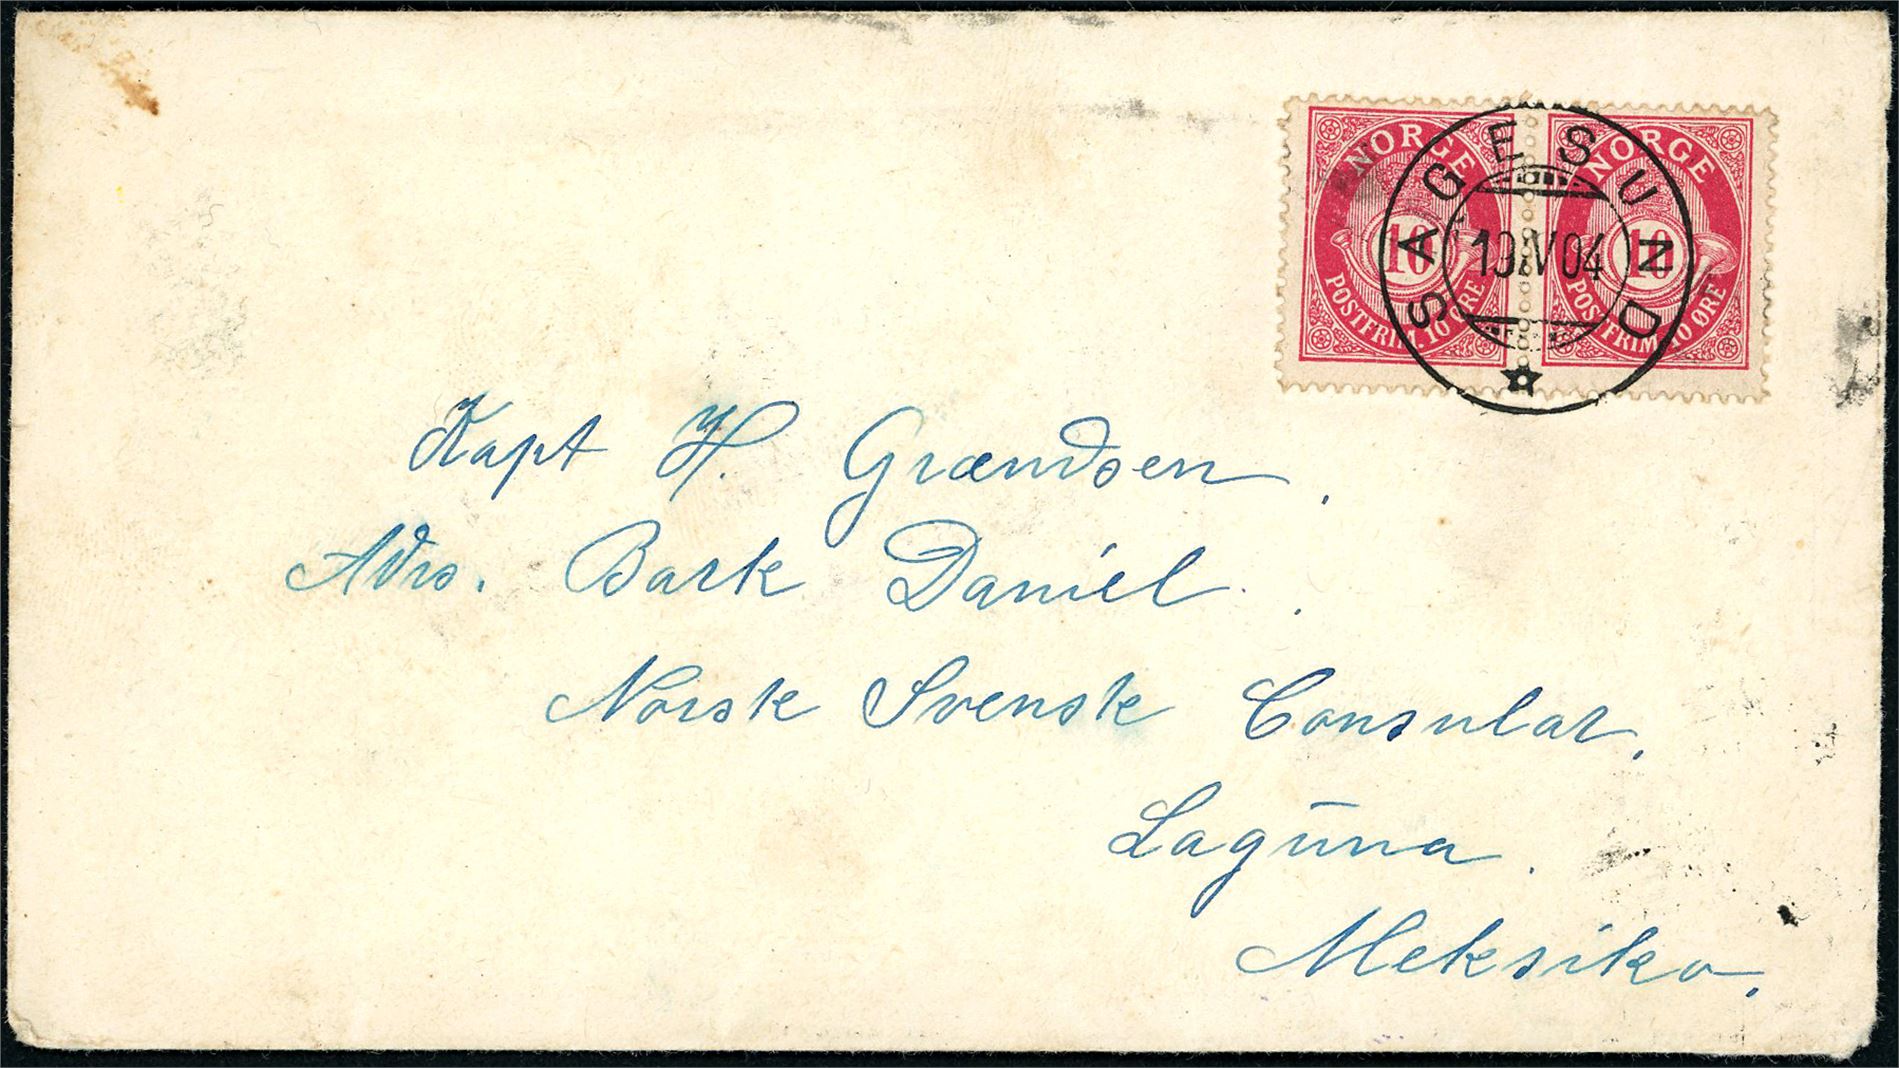 NORGE NORGE
10 10
POSTFRIM. 10 ØRE POSTFRIM. 10 ØRE
SAGESUND
19 IV 04
Kapt H. Grændsen.
Adrs. Bark Daniel.
Norsk Svensk Consular.
Laguna.
Meksiko.